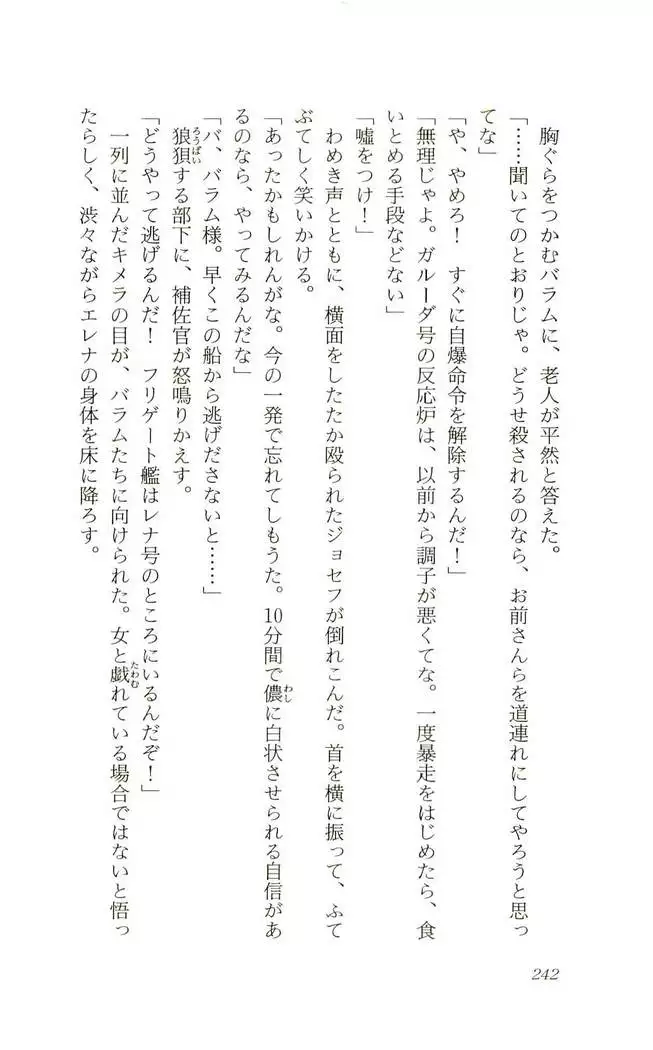 胸ぐらをつかむバラムに、老人が平然と答えた。
「……聞いてのとおりじゃ。どうせ殺されるのなら、お前さんらを道連れにしてやろうと思っ
てな」
「や、やめろ！　すぐに自爆命令を解除するんだ！」
「無理じゃよ。ガルーダ号の反応炉は、以前から調子が悪くてな。一度暴走をはじめたら、食
いとめる手段などない」
「嘘をつけ！」
わめき声とともに、横面をしたたか殴られたジョセフが倒れこんだ。首を横に振って、ふて
ぶてしく笑いかける。
「あったかもしれんがな。今の一発で忘れてしもうた。10分間で儂わしに白状させられる自信があ
るのなら、やってみるんだな」
「バ、バラム様。早くこの船から逃げださないと……」
狼狽ろうばいする部下に、補佐官が怒鳴りかえす。
「どうやって逃げるんだ！　フリゲート艦はレナ号のところにいるんだぞ！」
一列に並んだキメラの目が、バラムたちに向けられた。女と戯たわむれている場合ではないと悟っ
たらしく、渋々ながらエレナの身体を床に降ろす。
242